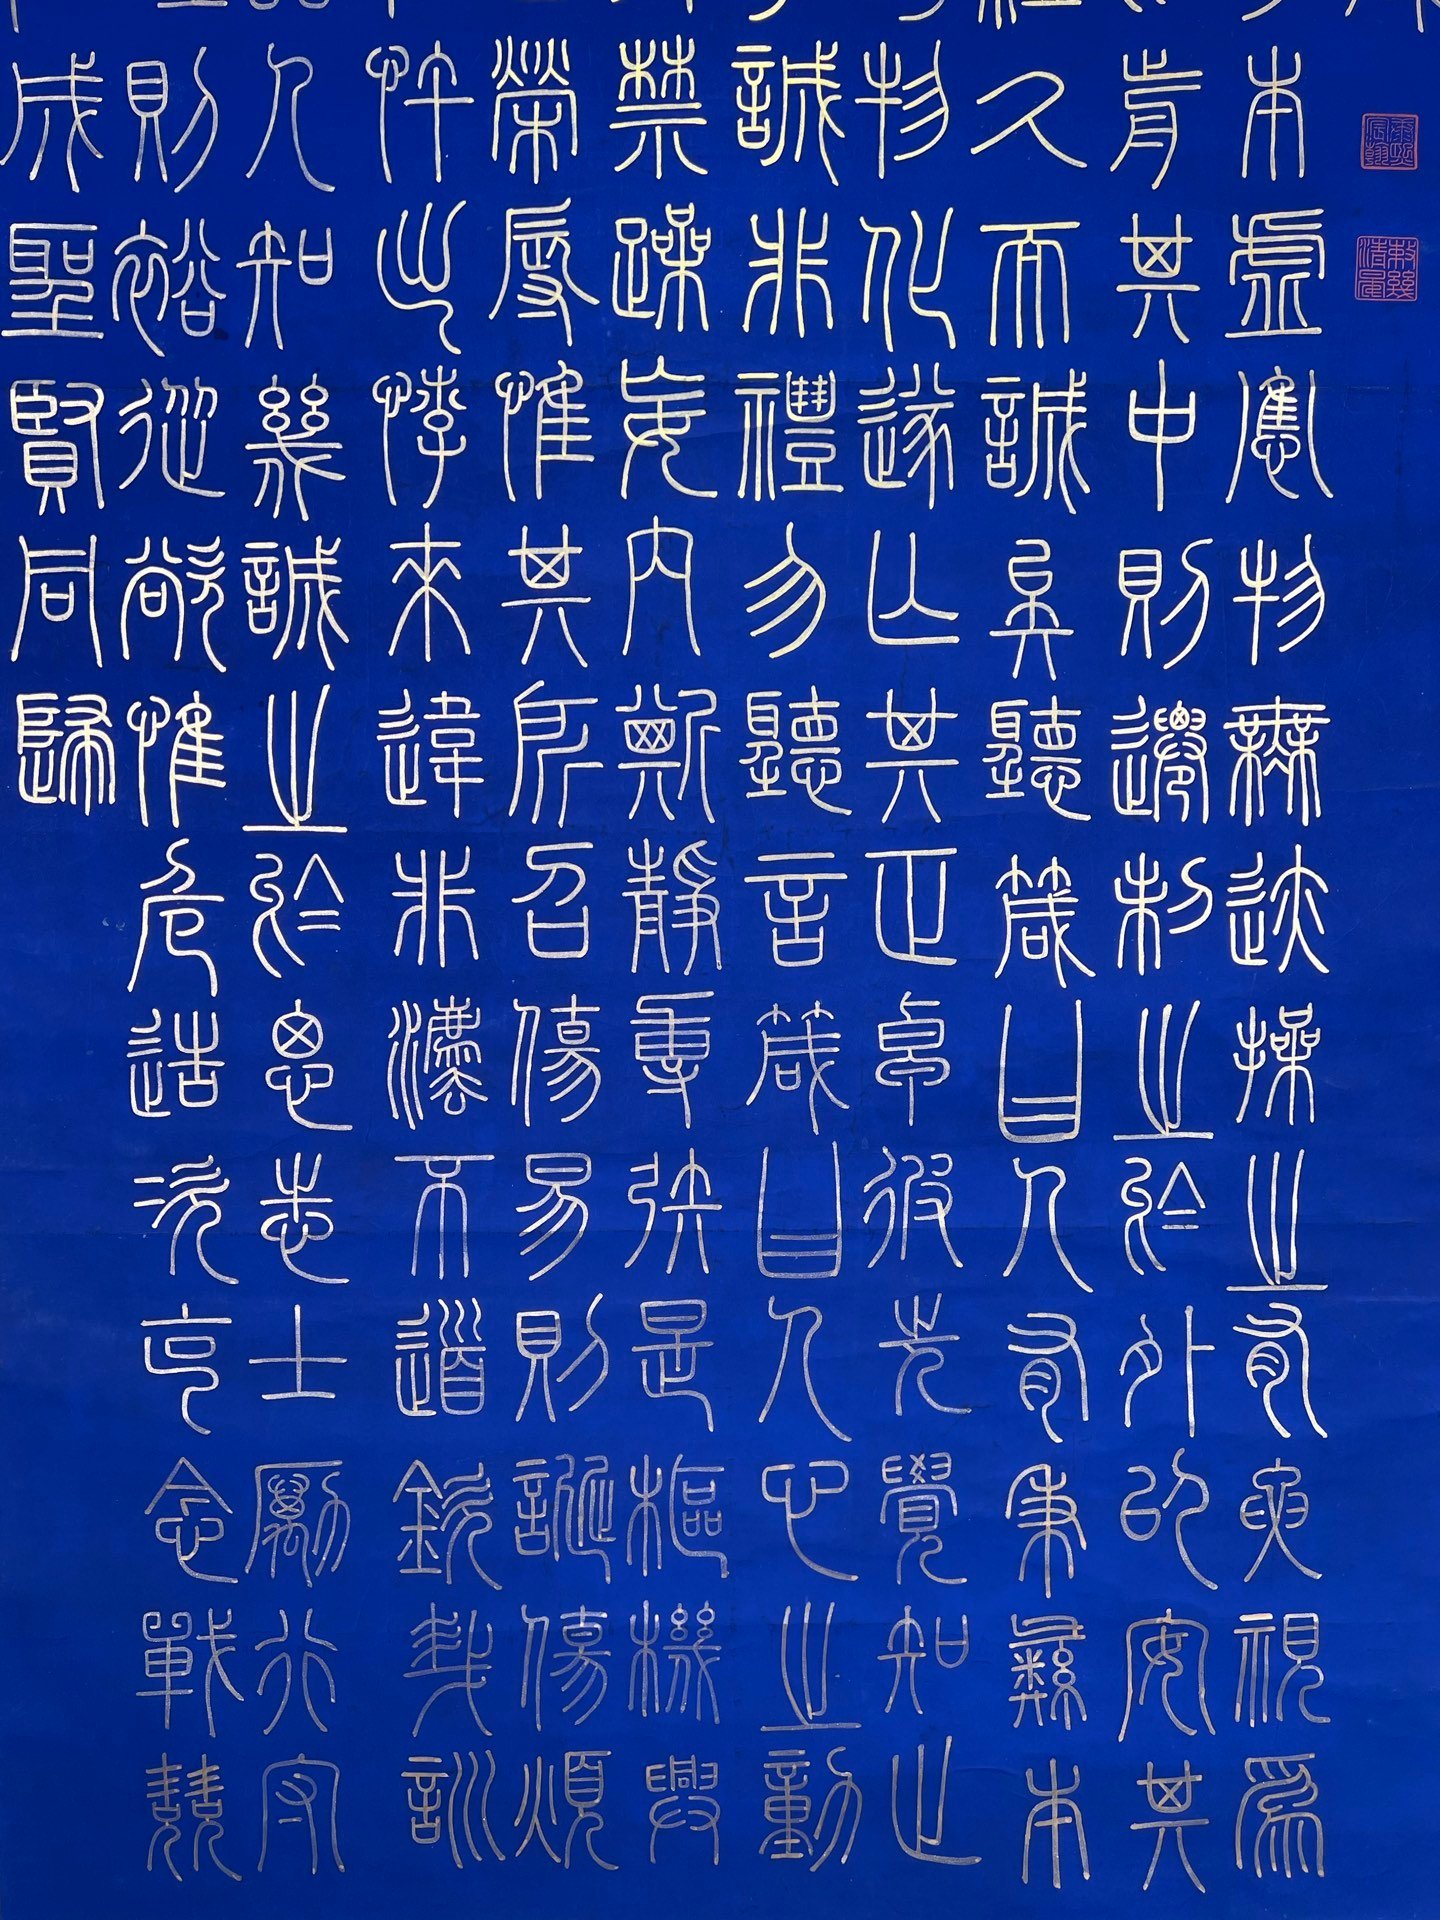 康熙宸翰
敕幾清晏
本虛應物無迹操之有要視爲
前其中則遷制之於外以安其
久而誠矣聽箴曰人有秉彝本
物化遂亡其正卓彼先覺知止
誠非禮勿聽言箴曰人心之動
禁躁妄內斯靜專矧是樞機興
榮辱惟其所召傷易則誕傷煩
忤出悖來違非法不道欽哉訓
人知幾誠之於思志士勵行守
則裕從欲惟危造次克念戰兢
成聖賢同歸